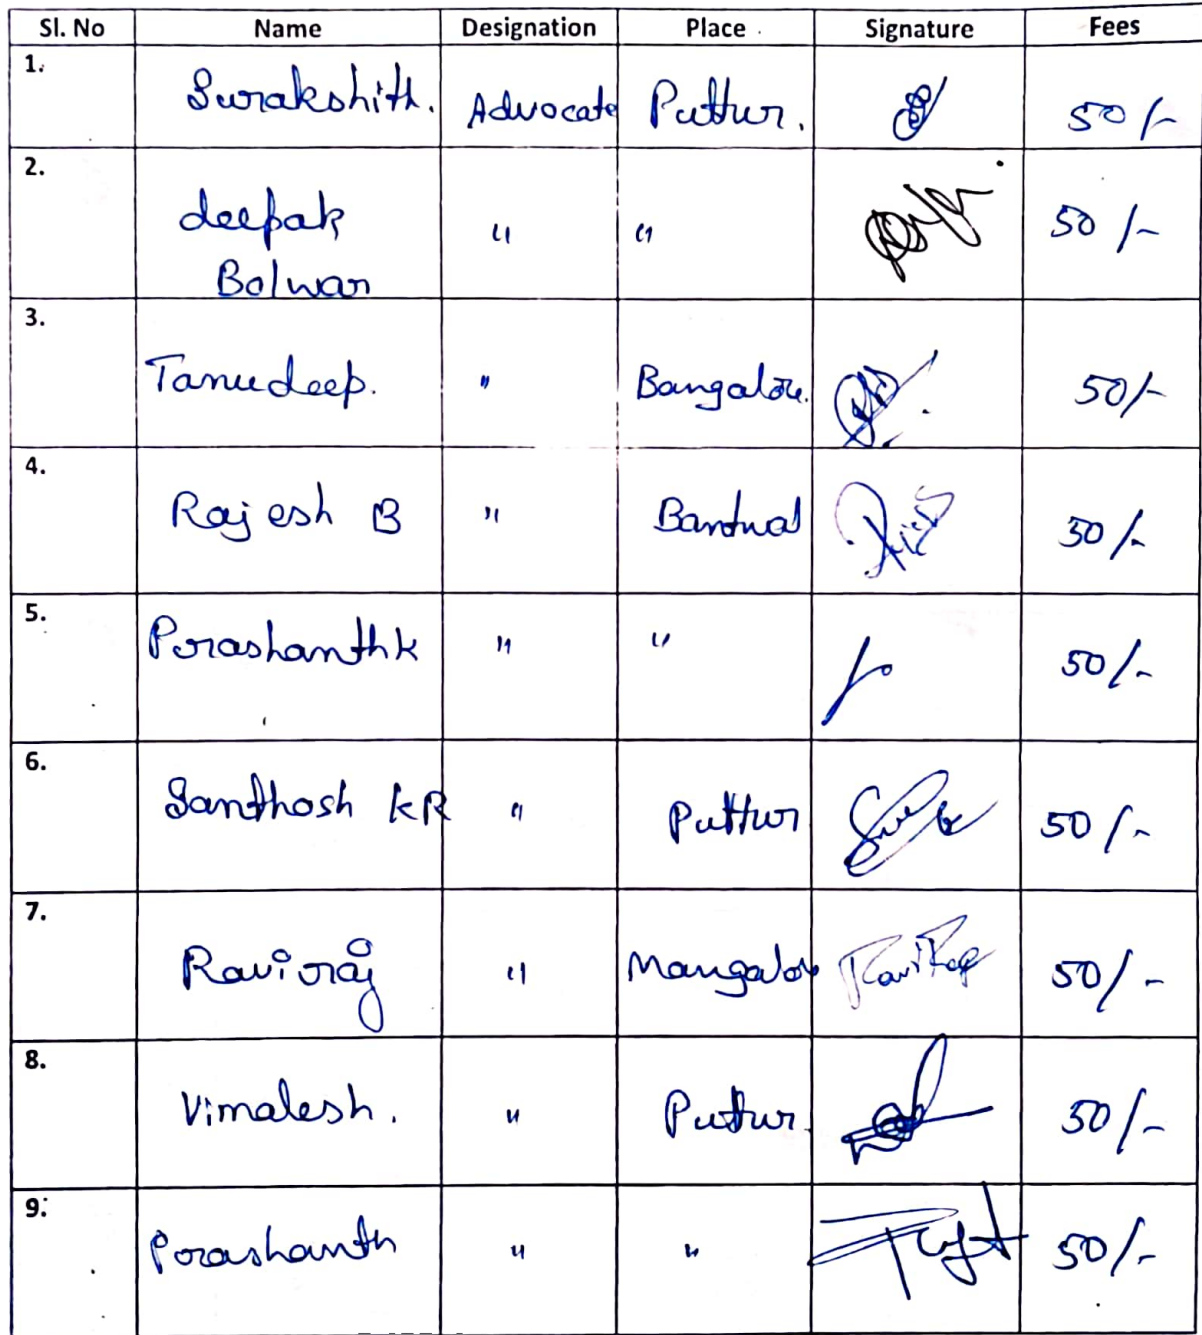 Sl. No Name Designation Place Signature Fees
1. Surakshith. Advocate Puttur. 50/-
2. deepak " " 50/-
Bolwar
3. Tanudeep. " Bangalore. 50/-
4. Rajesh B " Bantwal 50/-
5. Prashanth k " " 50/-
6. Santhosh KR " Puttur 50/-
7. Raviraj " Mangalore RaviRaj 50/-
8. Vimalesh. " Puttur. 50/-
9. Prashanth " " 50/-